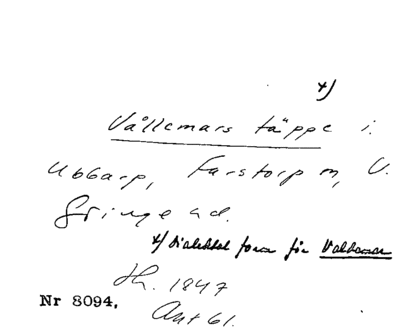 x)
Vållemars täppe i.
Ubbarp, Farstorp sn, V.
Göinge hd.
x) Dialektal form för Valdemar
Jh. 1847
Nr 8094.
Ant 61.